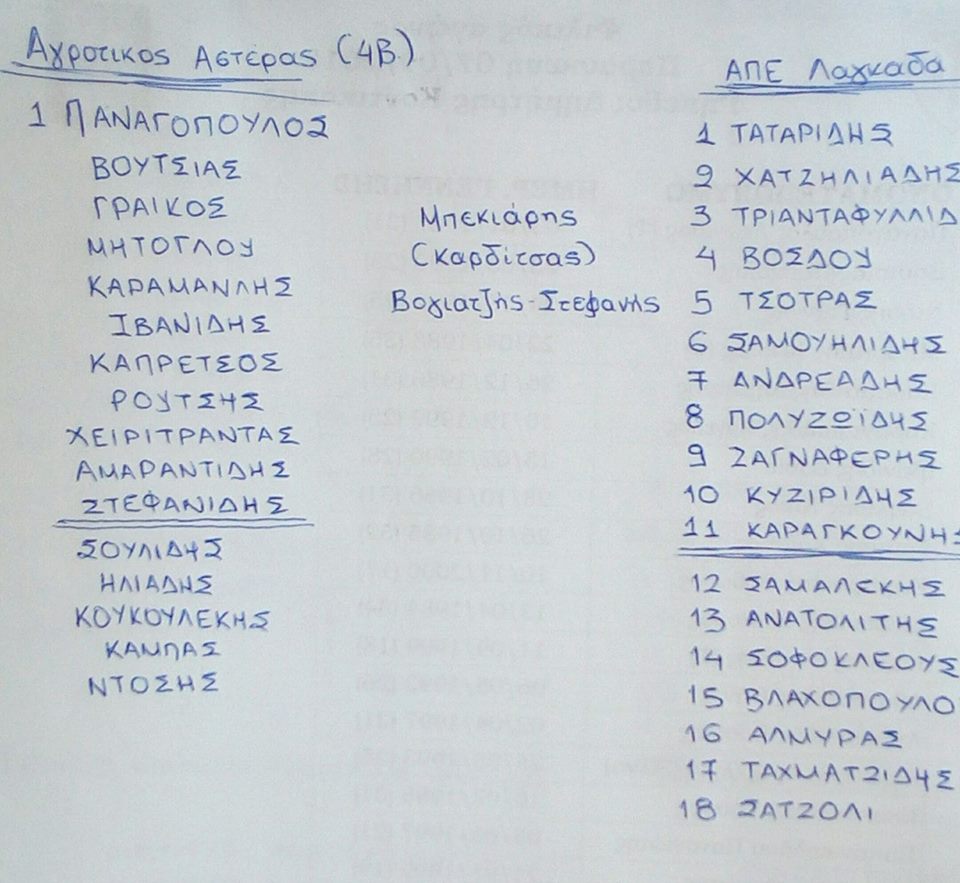 Αγροτικος Αστέρας (4Β)
1 ΠΑΝΑΓΟΠΟΥΛΟΣ
ΒΟΥΤΣΙΑΣ
ΓΡΑΙΚΟΣ
ΜΗΤΟΓΛΟΥ
ΚΑΡΑΜΑΝΛΗΣ
ΙΒΑΝΙΔΗΣ
ΚΑΠΡΕΤΣΟΣ
ΡΟΥΤΣΗΣ
ΧΕΙΡΙΤΡΑΝΤΑΣ
ΑΜΑΡΑΝΤΙΔΗΣ
ΣΤΕΦΑΝΙΔΗΣ
ΣΟΥΛΙΔΗΣ
ΗΛΙΑΔΗΣ
ΚΟΥΚΟΥΛΕΚΗΣ
ΚΑΜΠΑΣ
ΝΤΟΣΗΣ
Μπεκιάρης
(Καρδίτσας)
Βογιατζής-Στεφανής
ΑΠΕ Λαγκαδα
1 ΤΑΤΑΡΙΔΗΣ
9 ΧΑΤΖΗΛΙΑΔΗΣ
3 ΤΡΙΑΝΤΑΦΥΛΛΙΔ
4 ΒΟΣΔΟΥ
5 ΤΣΟΤΡΑΣ
6 ΣΑΜΟΥΗΛΙΔΗΣ
7 ΑΝΔΡΕΑΔΗΣ
8 ΠΟΛΥΖΩΪΔΗΣ
9 ΖΑΓΝΑΦΕΡΗΣ
10 ΚΥΖΙΡΙΔΗΣ
11 ΚΑΡΑΓΚΟΥΝΗΣ
12 ΣΑΜΑΛΕΚΗΣ
13 ΑΝΑΤΟΛΙΤΗΣ
14 ΣΟΦΟΚΛΕΟΥΣ
15 ΒΛΑΧΟΠΟΥΛΟ
16 ΑΛΜΥΡΑΣ
17 ΤΑΧΜΑΤΖΙΔΗΣ
18 ΣΑΤΖΟΛΙ